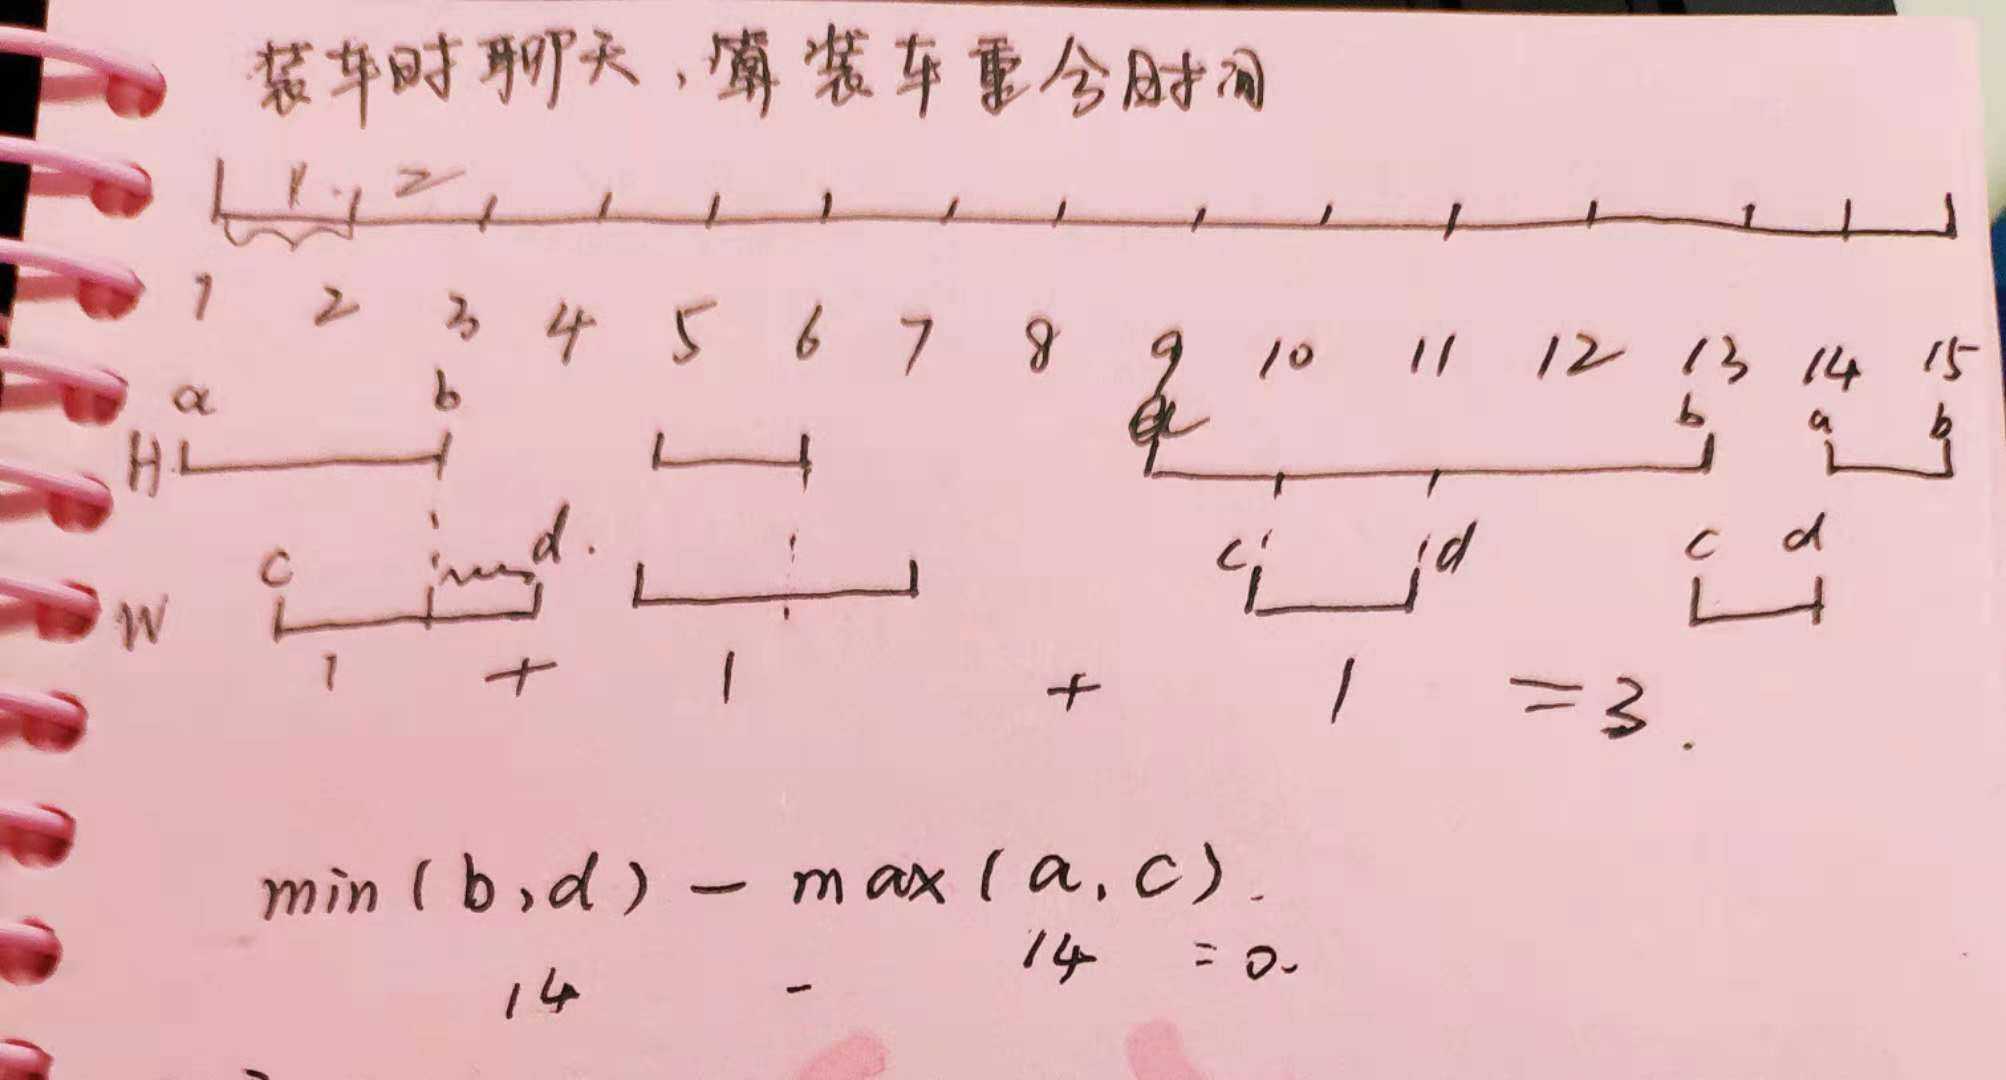 装车时聊天,算装车重合时间
1 2
1 2 3 4 5 6 7 8 9 10 11 12 13 14 15
a b a b a b
H
c d. c d c d
W
1 + 1 + 1 =3.
min(b,d) - max(a,c).
14 - 14 =0.